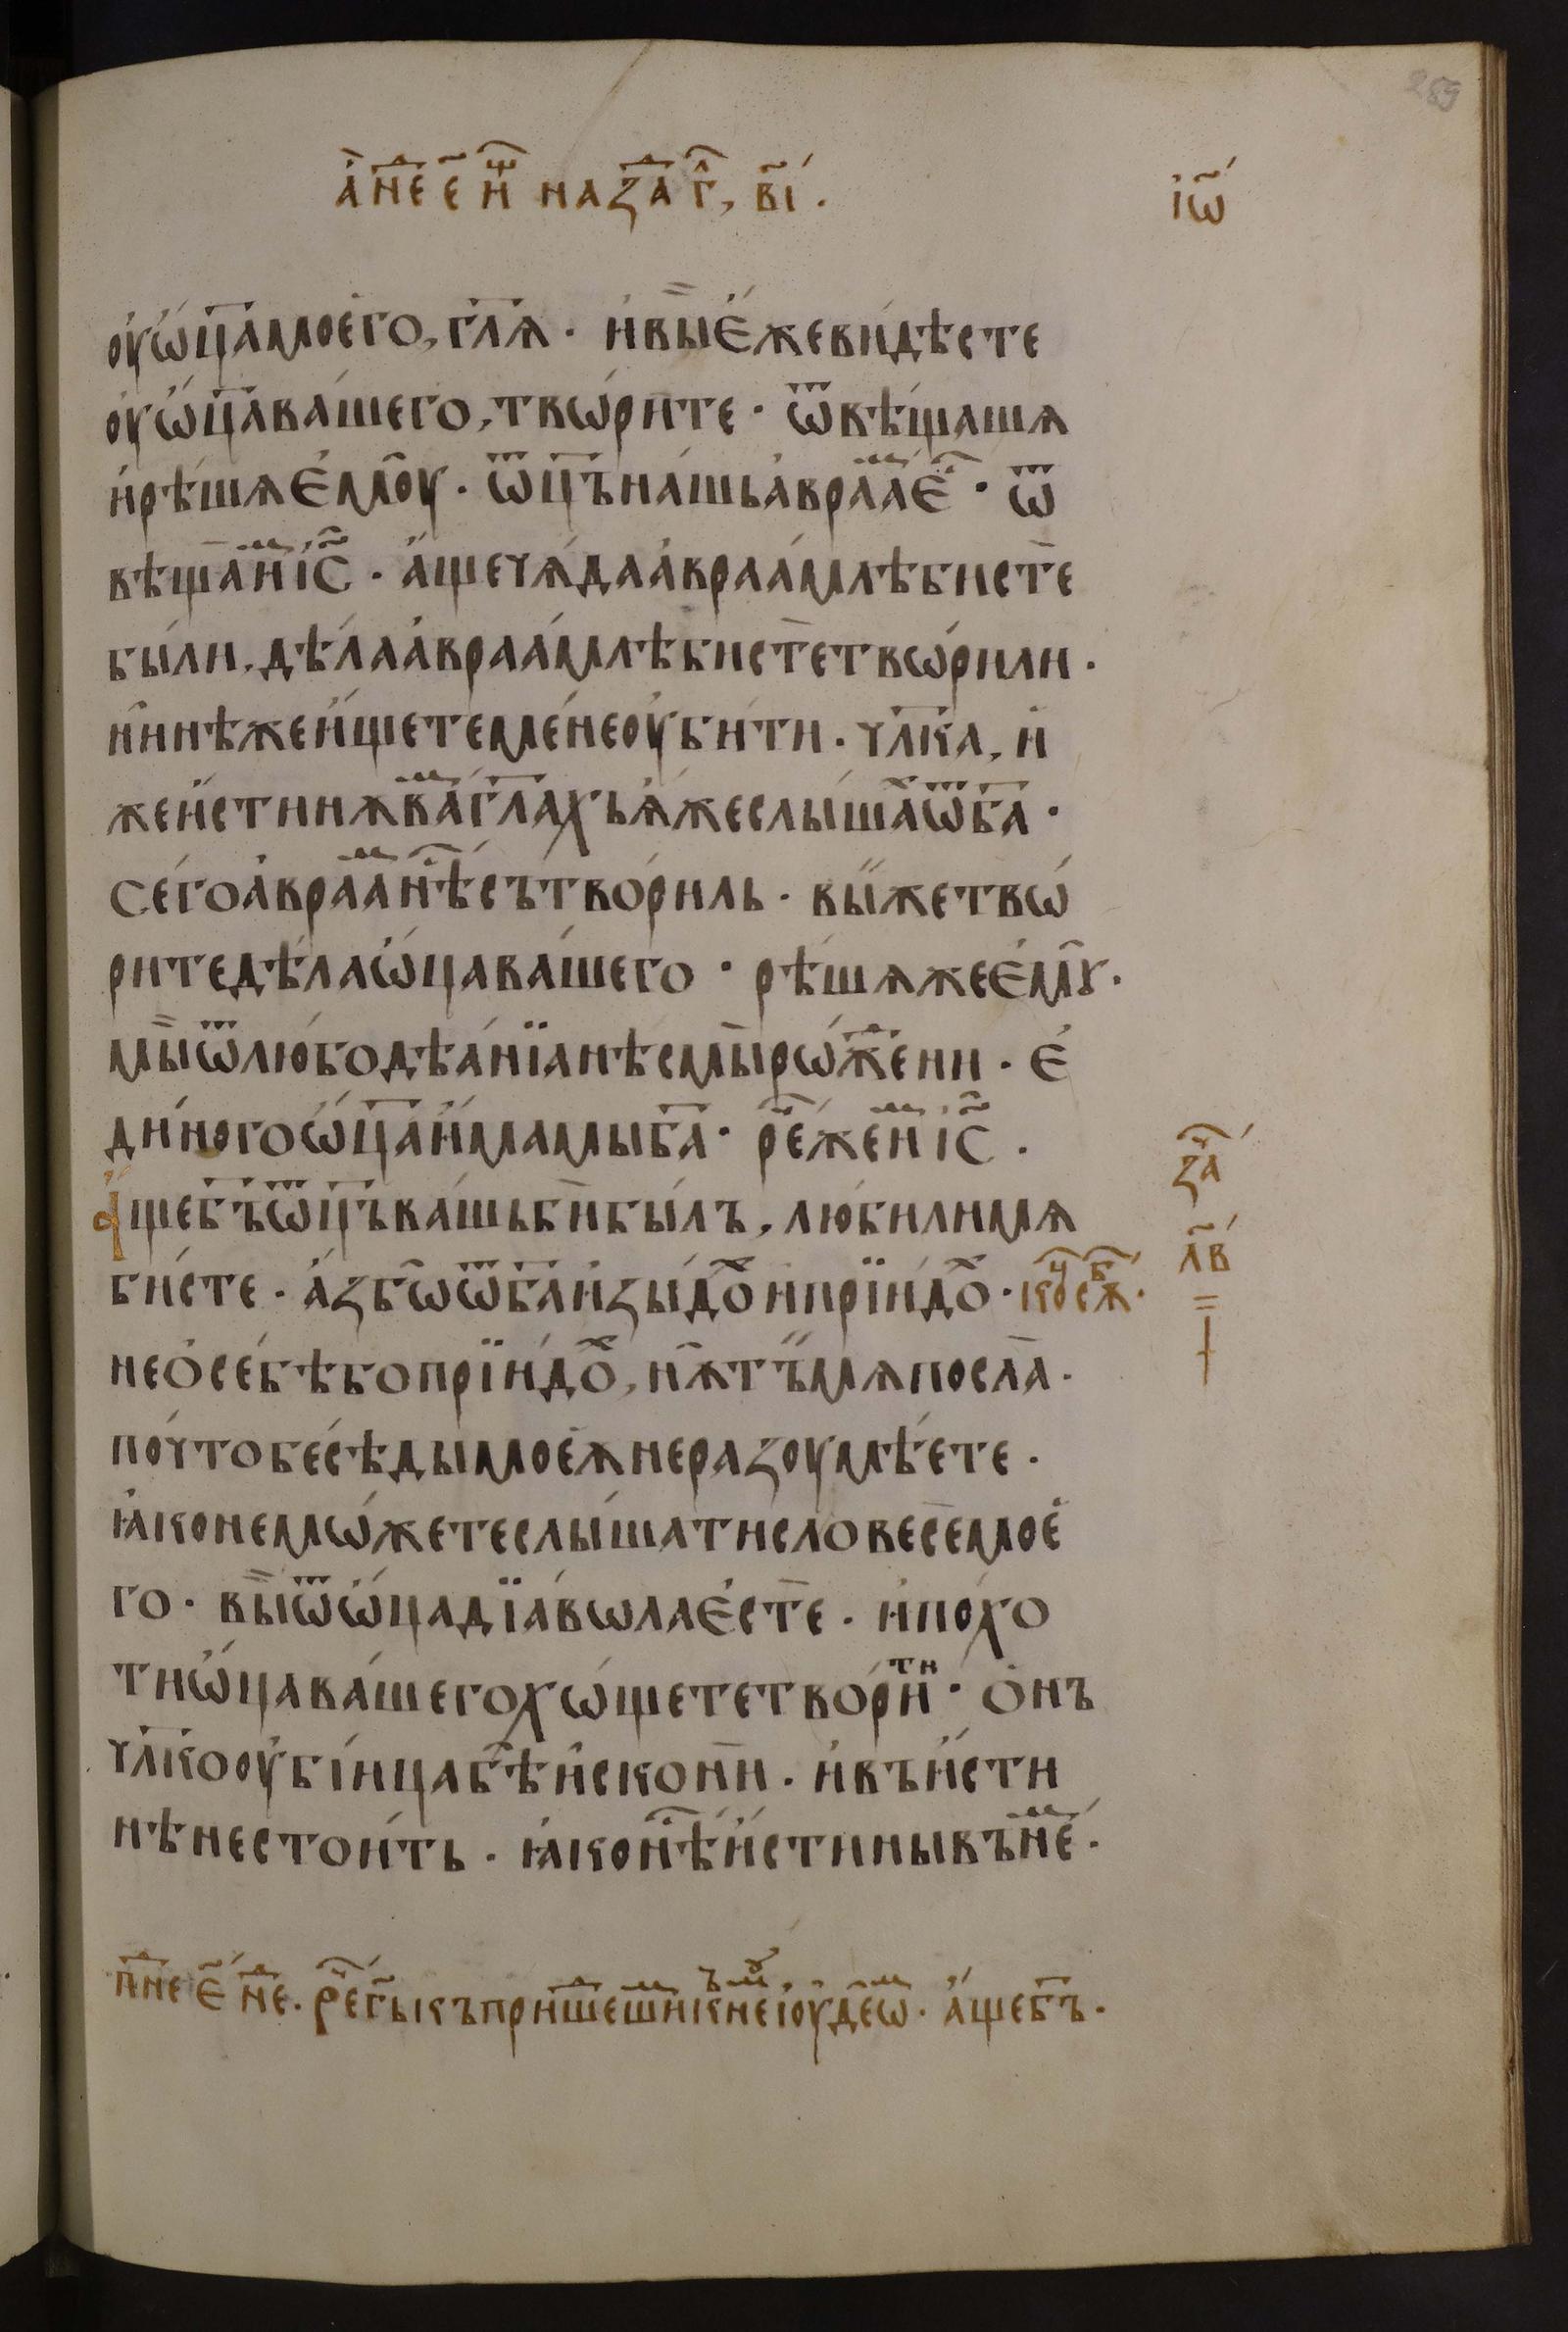 а҆ н҃е є҃ н҃ на за̑ г҃, в҃і.
і҆ѡ҃
оу҆ѡ҆ц҃а моего, гл҃ѧ · и҆ вы̀ є҆же ви́дѣсте
оу҆ѡ҆ц҃а ва́шего, твѡ́рите · ѿвѣ́щашѧ
и҆рѣ́шѧ є҆мо́у · ѿц҃ъ на́шь а҆враа́ є҆ · ѿ
вѣща́ и҆ і҆с҃ · а҆́ще чѧ́да а҆враа́млѣ бисте
бы́ли, дѣ́ла а҆враа́млѣ бисте твѡ́рили ·
нн҃ѣ же и҆́щете мене оу҆би́ти · чл҃ка, и҆
же и҆́стинѫ ва́ гл҃ахь ꙗ҆́же слы́ша ѿ б҃а ·
сего а҆враа́ нѣ́ сътво́риль · вы́ же твѡ́
рите дѣ́ла ѡ҆ца ва́шего · рѣ́шѧ же є҆мꙋ ·
мы̀ ѿ любодѣа́нїа нѣсмы̀ рѡ́жени · є҆
ди́ного ѡ҆ц҃а и҆́мамы б҃а · ре́ же и҆ і҆с҃ ·
а҆́ще б҃ъ ѿц҃ъ ва́шь би бы́лъ, люби́ли мѧ
би́сте · а҆́з бѡ ѿ б҃а и҆зы́дѡ и҆ прїи́дѡ · кⷪ сѫⷠ ·
за҃
л҃в
не о҆ себѣ́ бо прїи́до, нѫ тъ́ мѧ посла̀ ·
по́что бесѣ́ды моеѧ̀ не разоумѣ́ете ·
ꙗ҆ко не мѡ́жете слы́шати словесе мое
го · вы̀ ѿ ѡ҆ца дїа́вѡла є҆сте · и҆ по́хо
ти ѡ҆ца ва́шего хѡ́щете твори́ти · о҆нъ
чл҃кооу҆бі́ица бѣ̀ и҆скони · и҆ въ и҆́сти
нѣ не стои́ть · ꙗ҆ко нѣ́ и҆́стины въ не́мь ·
п҃не є҃ н҃е · ре́ г҃ь къ прише́дши к не́ і҆оу҆де́ѡ · а҆́ще б҃ъ ·